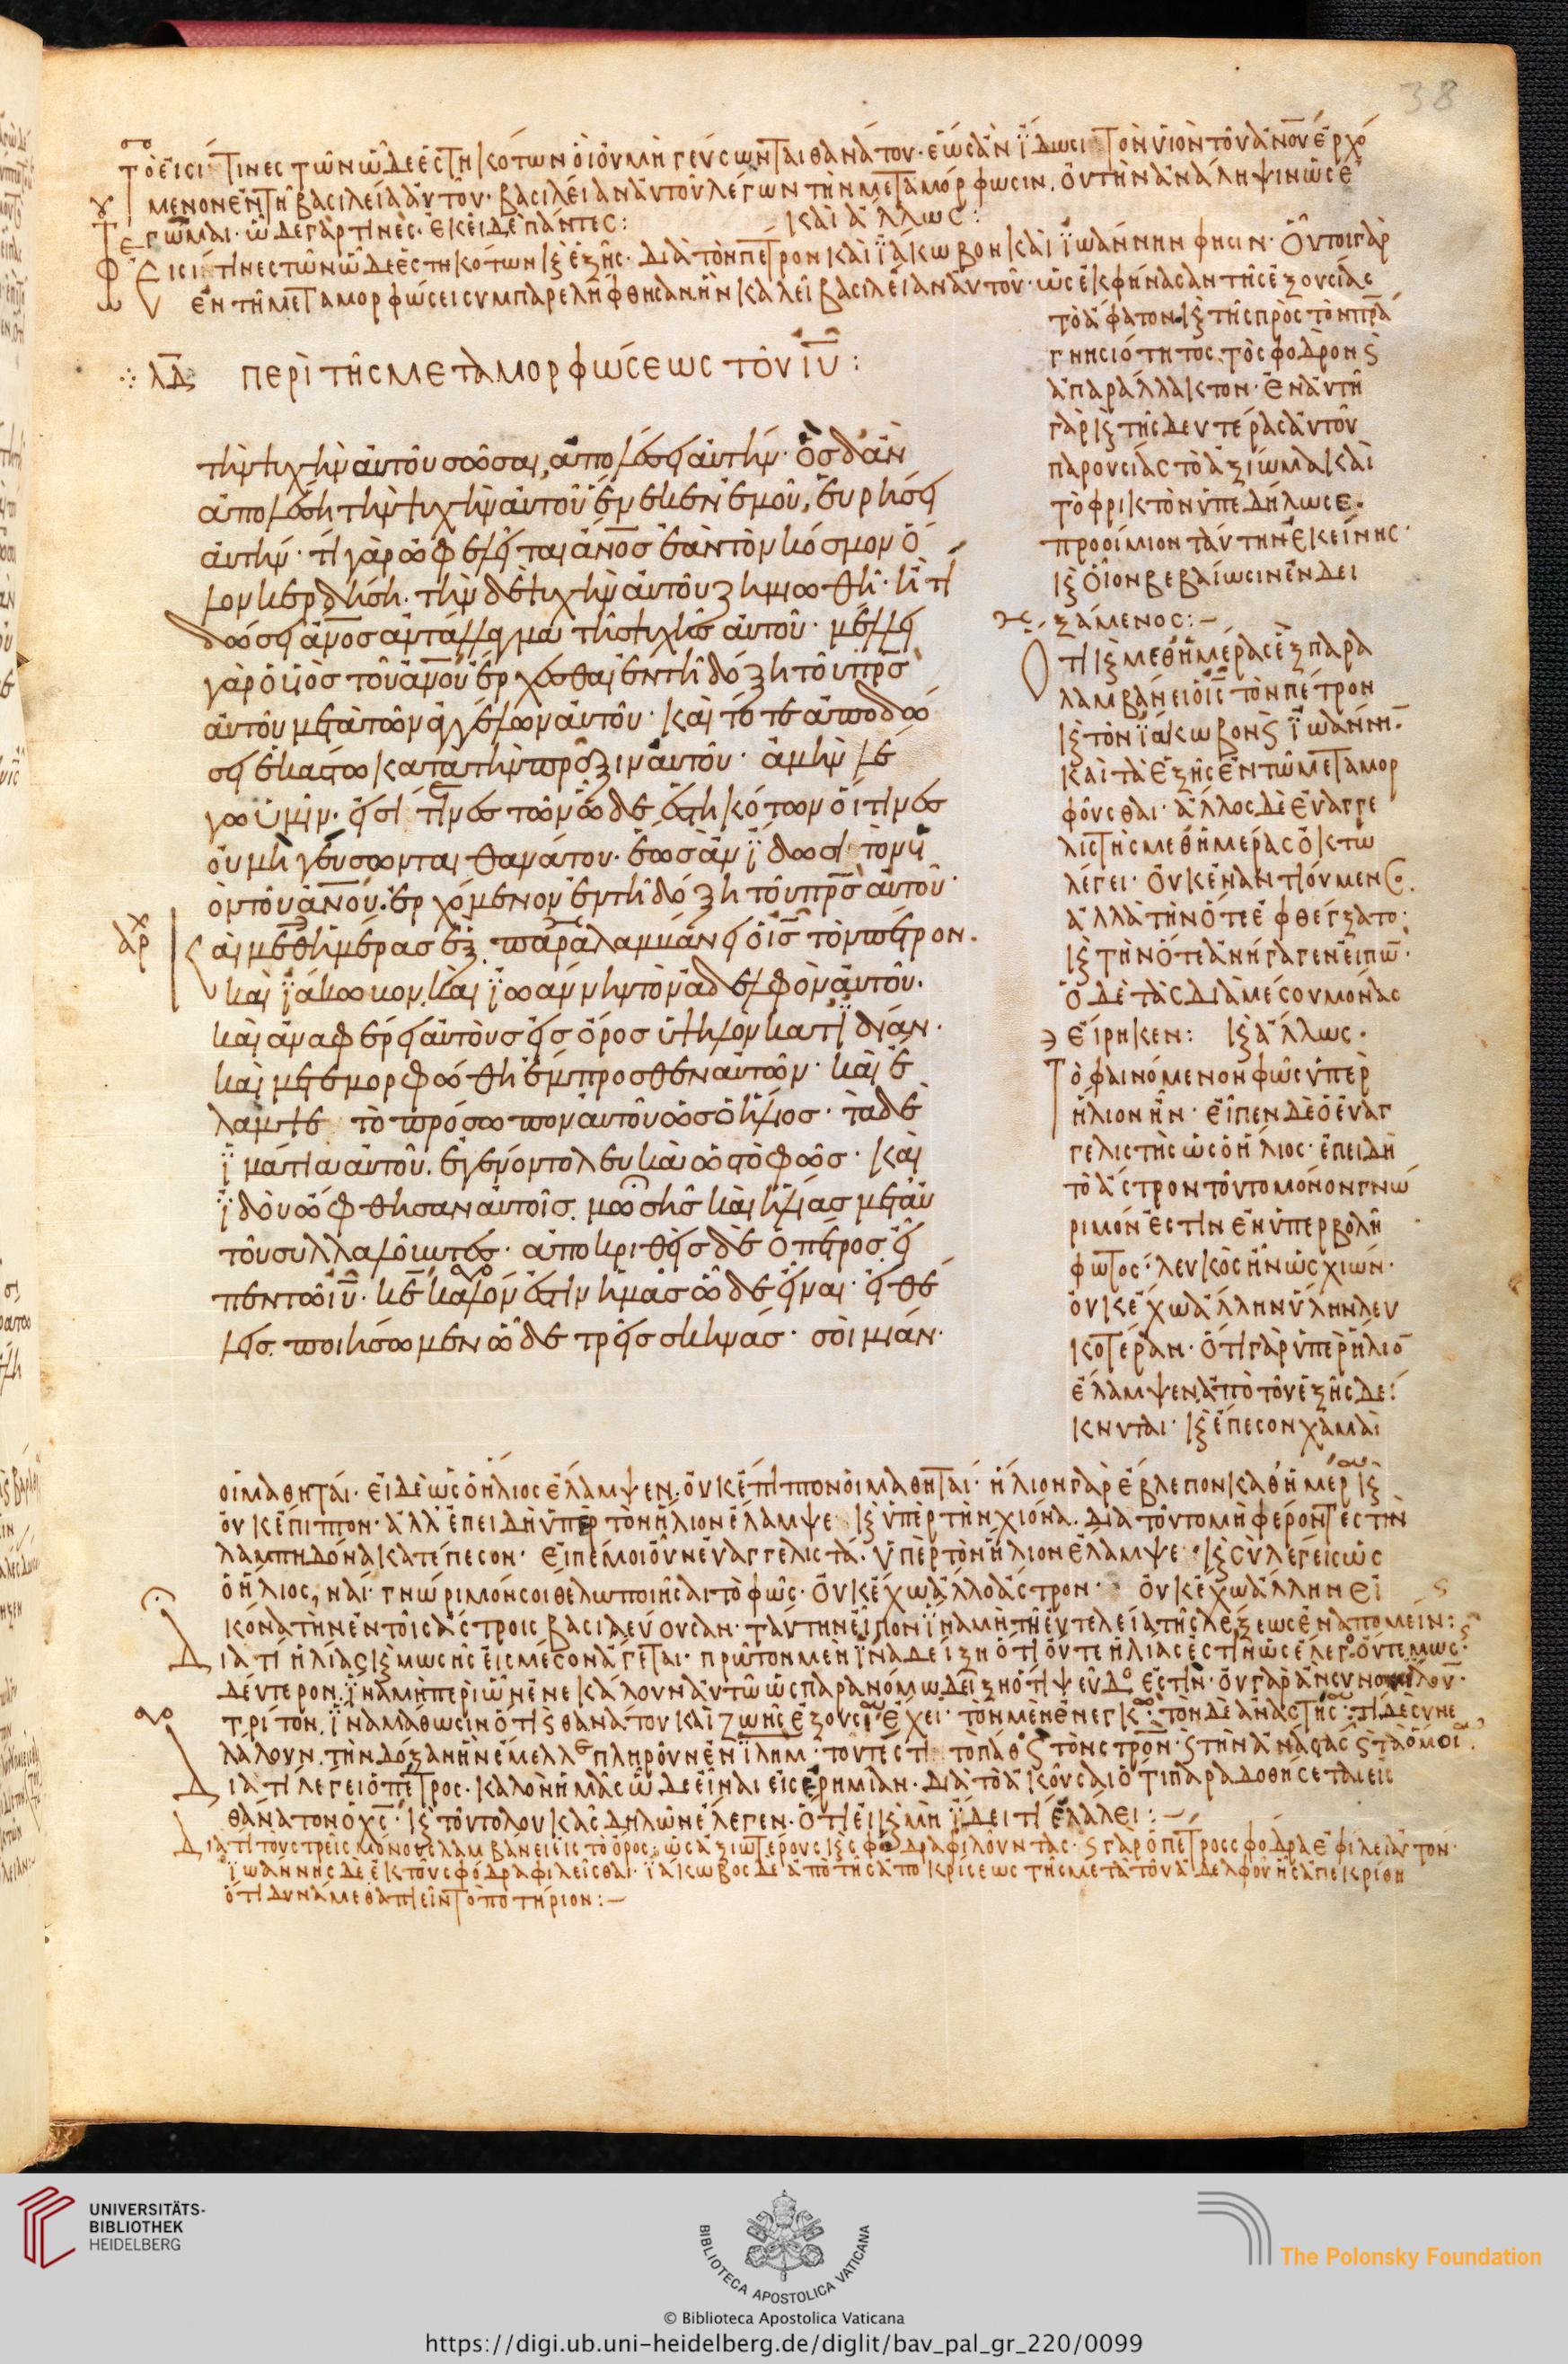 38
Τὸ εἰσί τινες τῶν ὧδε ἑστηκότων οἳ οὐ μὴ γεύσωνται θανάτου· ἕως ἂν ἴδωσι τὸν υἱὸν τοῦ ἀνου ἐρχό
μενον ἐν τῆ βασιλεία αὐτοῦ· βασιλείαν αὐτοῦ λέγων τὴν μεταμόρφωσιν. οὐ τὴν ἀνάληψιν ὡς ἐ
γῶμαι· ὧδε γάρ τινες· ἐκεῖ δὲ πάντες: καὶ ἄλλως:
Εἰσί τινες τῶν ὧδε ἑστηκότων κ ἑξῆς· διὰ τὸν πέτρον καὶ ἰάκωβον καὶ ἰωάννην φησιν· οὗτοι γὰρ
ἐν τῆ μεταμορφώσει συμπαρελήφθησαν ἣν καλεῖ βασιλείαν αὐτοῦ· ὡς ἐκφήνασαν τῆς ἐξουσίας
τὸ ἄφατον κ τῆς πρὸς τὸν πρα
γνησιότητος τὸ σφοδρον κ
ἀπαράλλακτον· ἐν αὐτῆ
γὰρ κ τῆς δευτέρας αὐτοῦ
παρουσίας τὸ ἀξίωμα καὶ
τὸ φρικτὸν ὑπεδήλωσε·
προοίμιον ταύτην ἐκείνης·
κ οἷον βεβαίωσιν ἐνδει
ξάμενος:
λδ περὶ τῆς μεταμορφώσεως τοῦ ιυ:
τὴν ψυχὴν αὐτοῦ σῶσαι, ἀπολέσει αὐτήν· ὃς δ ἂν
ἀπολέση τὴν ψυχὴν αὐτοῦ ἕνεκεν ἐμοῦ, εὑρήσει
αὐτήν· τί γὰρ ὠφελεῖται ἀνος ἐὰν τὸν κόσμον ὅ
λον κερδήση· τὴν δὲ ψυχὴν αὐτοῦ ζημιωθῆ· ἢ τί
δώσει ἀνος ἀντάλλαγμα τῆς ψυχῆς αὐτοῦ· μέλλει
γὰρ ὁ υἱὸς τοῦ ἀνου ἔρχεσθαι ἐν τῆ δόξη τοῦ πρς
αὐτοῦ μετὰ τῶν ἀγγέλων αὐτοῦ· καὶ τότε ἀποδώ
σει ἑκάστω κατὰ τὴν πρᾶξιν αὐτοῦ· ἀμὴν λέ
γω ὑμῖν· εἰσί τινες τῶν ὧδε ἑστηκότων οἵτινες
οὐ μὴ γεύσωνται θανάτου· ἕως ἂν ἴδωσι τὸν υἱ
ὸν τοῦ ἀνου· ἐρχόμενον ἐν τῆ δόξη τοῦ πρς αὐτοῦ·
αρχ Καὶ μεθ ἡμέρας ἓξ παραλαμμάνει ὁ ις τὸν πέτρον.
καὶ ἰάκωκον, καὶ ἰωάννην τὸν ἀδελφὸν αὐτοῦ.
καὶ ἀναφέρει αὐτοὺς εἰς ὄρος ὑψηλὸν κατ ἰδίαν·
καὶ μετεμορφώθη ἔμπροσθεν αὐτῶν· καὶ ἔ
λαμψε τὸ πρόσωπον αὐτοῦ ὡς ὁ ἥλιος· τὰ δὲ
ἱμάτια αὐτοῦ. ἐγένοντο λευκὰ ὡς τὸ φῶς· καὶ
ἰδοὺ ὤφθησαν αὐτοῖς. μωσῆς καὶ ἠλίας μετ αὐ
τοῦ συλλαλοῦντες· ἀποκριθεὶς δὲ ὁ πέτρος εἶ
πεν τῶ ιυ· κε καλόν ἐστιν ἡμᾶς ὧδε εἶναι· εἰ θέ
λεις. ποιήσωμεν ὧδε τρεῖς σκηνάς· σοὶ μιάν·
Ὅτι κ μεθ ἡμέρας ἓξ παρα
λαμβάνει ὁ ις τὸν πέτρον
κ τὸν ἰάκωβον κ ἰωάννην
καὶ τὰ ἑξῆς ἐν τῶ μεταμορ
φοῦσθαι· ἄλλος δὲ εὐαγγε
λιστὴς μεθ ἡμέρας ὀκτὼ
λέγει· οὐκ ἐναντιούμενος.
ἀλλὰ τὴν ὅτε ἐφθέγξατο·
κ τὴν ὅτε ἀνήγαγεν εἰπὼν·
ὁ δὲ τὰς διὰ μέσου μόνας
εἴρηκεν: κ ἄλλως·
Τὸ φαινόμενον φῶς ὑπὲρ
ἥλιον ἦν· εἶπεν δὲ ὁ εὐαγ
γελιστὴς ὡς ὁ ἥλιος· ἐπειδὴ
τὸ ἄστρον τοῦτο μόνον γνώ
ριμόν ἐστιν ἐν ὑπερβολῆ
φωτός· λευκὸς ἦν ὡς χιών·
οὐκ ἔχω ἄλλην ὕλην λευ
κοτέραν· ὅτι γὰρ ὑπὲρ ἥλιον
ἔλαμψεν ἀπὸ τοῦ ἑξῆς δεί
κνυται· κ ἔπεσον χαμαὶ
οἱ μαθηταί· εἰ δὲ ὡς ὁ ἥλιος ἔλαμψεν. οὐκ ἔπιπτον οἱ μαθηταί· ἥλιον γὰρ ἔβλεπον καθ ἡμέραν κ
οὐκ ἔπιπτον· ἀλλ ἐπειδὴ ὑπὲρ τὸν ἥλιον ἔλαμψε κ ὑπὲρ τὴν χιόνα. διὰ τοῦτο μὴ φέροντες τὴν
λαμπηδόνα κατέπεσον· εἰπέ μοι οὖν εὐαγγελιστά. ὑπὲρ τὸν ἥλιον ἔλαμψε· κ σὺ λέγεις ὡς
ὁ ἥλιος, ναί· γνώριμόν σοι θέλω ποιῆσαι τὸ φῶς· οὐκ ἔχω ἄλλο ἄστρον· οὐκ ἔχω ἄλλην εἰ
κόνα τὴν ἐν τοῖς ἄστροις βασιλεύουσαν· ταύτην εἶπον ἵνα μὴ τῆ εὐτελεία τῆς λέξεως ἐναπομείν:
Διατί ἠλίας κ μωσῆς εἰς μέσον ἄγεται· πρῶτον μὲν ἵνα δείξη ὅτι οὔτε ἠλίας ἐστὶν ὡς ἔλεγον οὔτε μωσ
δεύτερον ἵνα μὴ περὶ ὧν ἐνεκάλουν αὐτῶ ὡς παρανόμω δείξη ὅτι ψεῦδος ἐστὶν· οὐ γὰρ ἂν
τρίτον. ἵνα μάθωσιν ὅτι κ θανάτου καὶ ζωῆς ἐξουσίαν ἔχει· τὸν μὲν τὸν δὲ ἀναστήσας τί δὲ συνε
λάλουν. τὴν δόξαν ἣν ἔμελλε πληροῦν ἐν ιλημ· τουτέστι τὸ πάθος κ τὸν στρον· κ τὴν ἀνάστασιν κ τὰ ὅμοια.
Διατί λέγει ὁ πέτρος· καλὸν ἡμᾶς ὧδε εἶναι εἰς ἐρημίαν. διὰ τὸ ἀκοῦσαι ὅτι παραδοθήσεται εἰς
θάνατον ὁ χς· κ τοῦτο λουκᾶς δηλῶν ἔλεγεν. ὅτι εἰ κ μὴ ἤδει τί ἐλάλει:
Διατί τοὺς τρεῖς μόνους λαμβάνει εἰς τὸ ὄρος· ὡς ἀξιωτέρους κ σφόδρα φιλοῦντας· κ γὰρ ὁ πέτρος σφόδρα ἐφίλει αὐτον·
ἰωάννης δὲ ἐκ τοῦ σφόδρα φιλεῖσθαι· ἰάκωβος δὲ ἀπὸ τῆς ἀποκρίσεως τῆς μετὰ τοῦ ἀδελφοῦ ἧς ἀπεκρίθη
ὅτι δυνάμεθα πιεῖν τὸ ποτήριον:
UNIVERSITÄTS-
BIBLIOTHEK
HEIDELBERG
BIBLIOTECA APOSTOLICA VATICANA
The Polonsky Foundation
© Biblioteca Apostolica Vaticana
https://digi.ub.uni-heidelberg.de/diglit/bav_pal_gr_220/0099